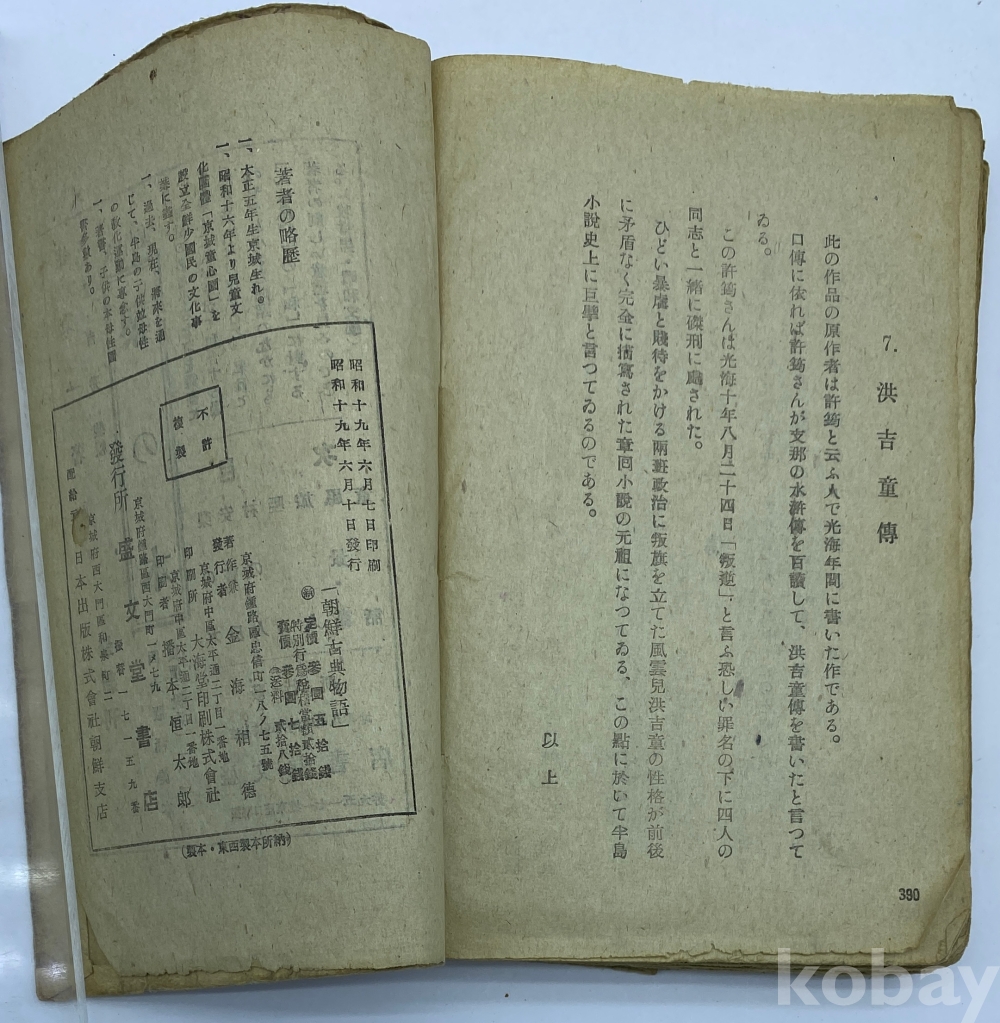 7. 洪吉童傳
此の作品の原作者は許筠と云ふ人で光海年間に書いた作である。
口傳に依れば許筠さんが支那の水滸傳を百讀して、洪吉童傳を書いたと言つて
ゐる。
この許筠さんは光海十年八月二十四日「叛逆」と言ふ恐しい罪名の下に四人の
同志と一緒に磔刑に處された。
ひどい暴虐と賤待をかける兩班政治に叛旗を立てた風雲兒洪吉童の性格が前後
に矛盾なく完全に描寫された章回小說の元祖になつてゐる、この點に於いて半島
小說史上に巨擘と言つてゐるのである。
以上
390
著者の略歷
一、大正五年生京城生れ。
一、昭和十六年より兒童文
化團體「京城童心園」を
設立全鮮少國民の文化事
業に盡す。
一、過去、現在、將來を通
じて、半島の子供並母性
の敎化運動に專念す。
昭和十九年六月七日印刷
昭和十九年六月十日發行
「朝鮮古典物語」
定價 參圓五拾錢
賣價 參圓七拾錢
不許
複製
京城府鍾路區忠信町一八ノ七五號
著作兼
發行者 金海相德
京城府中區太平通二丁目一番地
印刷所 大海堂印刷株式會社
京城府中區太平通二丁目一番地
印刷者 播本恒太郎
發行所 盛文堂書店
日本出版株式會社朝鮮支店
(納所本製西東・本製)
kobay